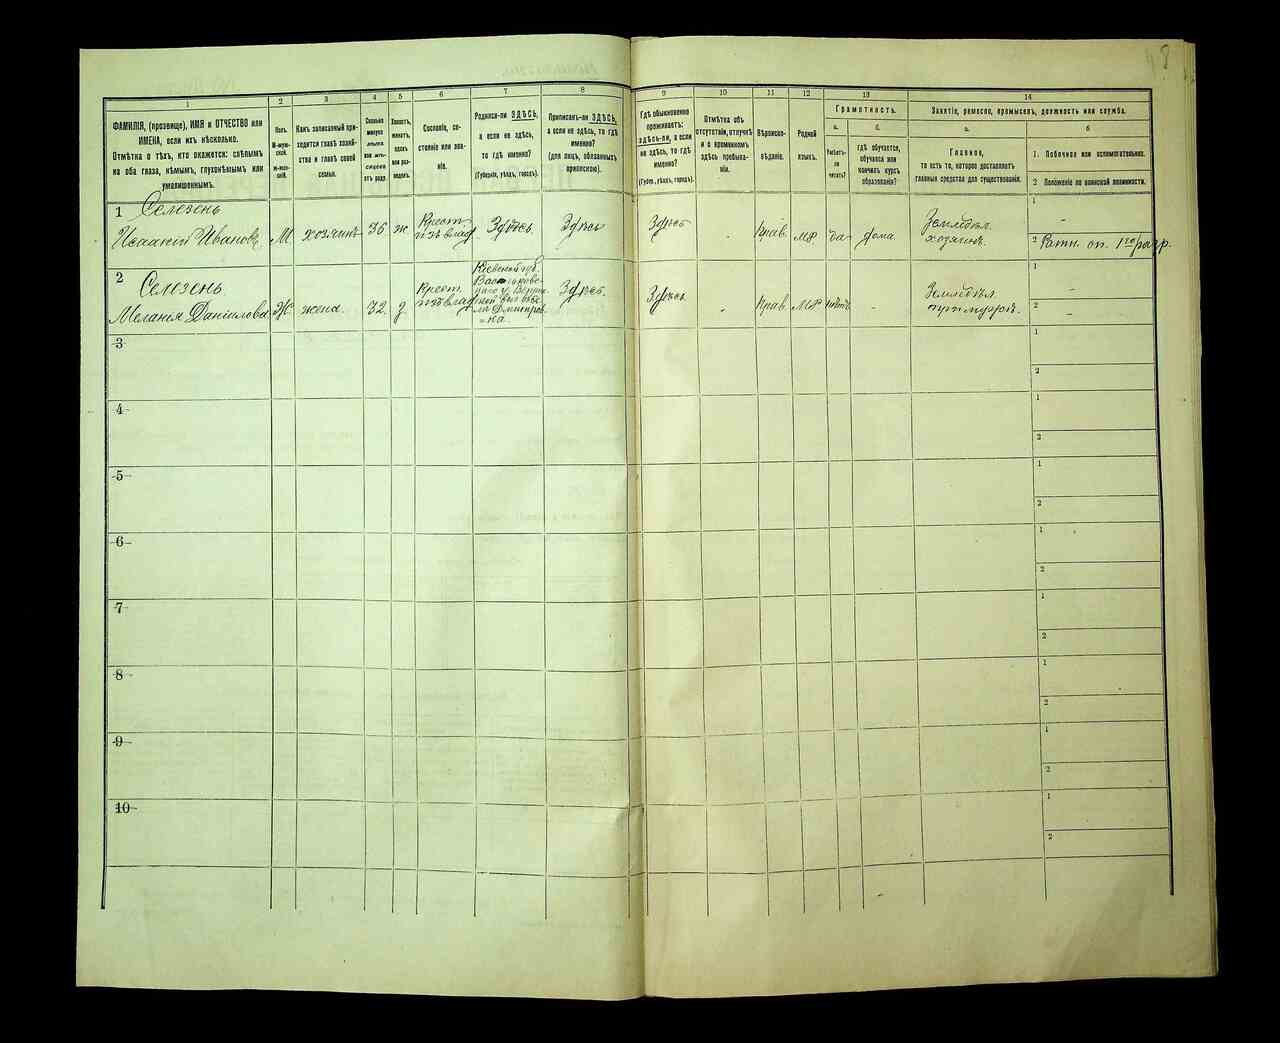 1
2
3
4
5
6
7
8
9
10
11
12
13
14
ФАМИЛІЯ, (прозвище), ИМЯ и ОТЧЕСТВО или
ИМЕНА, если ихъ нѣсколько.
Отмѣтка о тѣхъ, кто окажется: слѣпымъ
на оба глаза, нѣмымъ, глухонѣмымъ или
умалишеннымъ.
Полъ.
М-муж-
ской.
Ж-жен-
скій.
Какъ записанный при-
ходится главѣ хозяй-
ства и главѣ своей
семьи.
Сколько
минуло
лѣтъ
или мѣ-
сяцевъ
отъ роду.
Холостъ,
женатъ,
вдовъ
или раз-
веденъ.
Сословіе, со-
стояніе или зва-
ніе.
Родился-ли ЗДѢСЬ,
а если не здѣсь,
то гдѣ именно?
(Губернія, уѣздъ, городъ).
Приписанъ-ли ЗДѢСЬ,
а если не здѣсь, то гдѣ
именно?
(для лицъ, обязанныхъ
припискою).
Гдѣ обыкновенно
проживаетъ:
здѣсь-ли, а если
не здѣсь, то гдѣ
именно?
(Губ., уѣздъ, городъ).
Отмѣтка объ
отсутствіи, отлучкѣ
и о временномъ
здѣсь пребыва-
ніи.
Вѣроиспо-
вѣданіе.
Родной
языкъ.
Грамотность.
а.
б.
Умѣетъ-
ли
читать?
гдѣ обучается,
обучался или
кончилъ курсъ
образованія?
Занятіе, ремесло, промыселъ, должность или служба.
а.
б
Главное,
то есть то, которое доставляетъ
главныя средства для существованія.
1. Побочное или вспомогательное.
2 Положеніе по воинской повинности.
1
Селезень
Исаакій Ивановъ
М.
хозяинъ
36
ж.
Крест.
изъ влад.
Здѣсь.
Здѣсь
Здѣсь
Прав.
мр
да
дома.
Земледѣл.
хозяинъ.
1
-
2 Ратн. оп. 1го разр.
2
Селезень
Меланія Даніилова
Ж.
жена.
32.
з.
Крест.
изъ влад
Кіевской губ.
Здѣсь.
Здѣсь.
Прав.
мр
нѣтъ
-
Земледѣл.
при мужѣ.
1
-
2
-
3
1
2
4
1
2
5
1
2
6
1
2
7
1
2
8
1
2
9
1
2
10
1
2